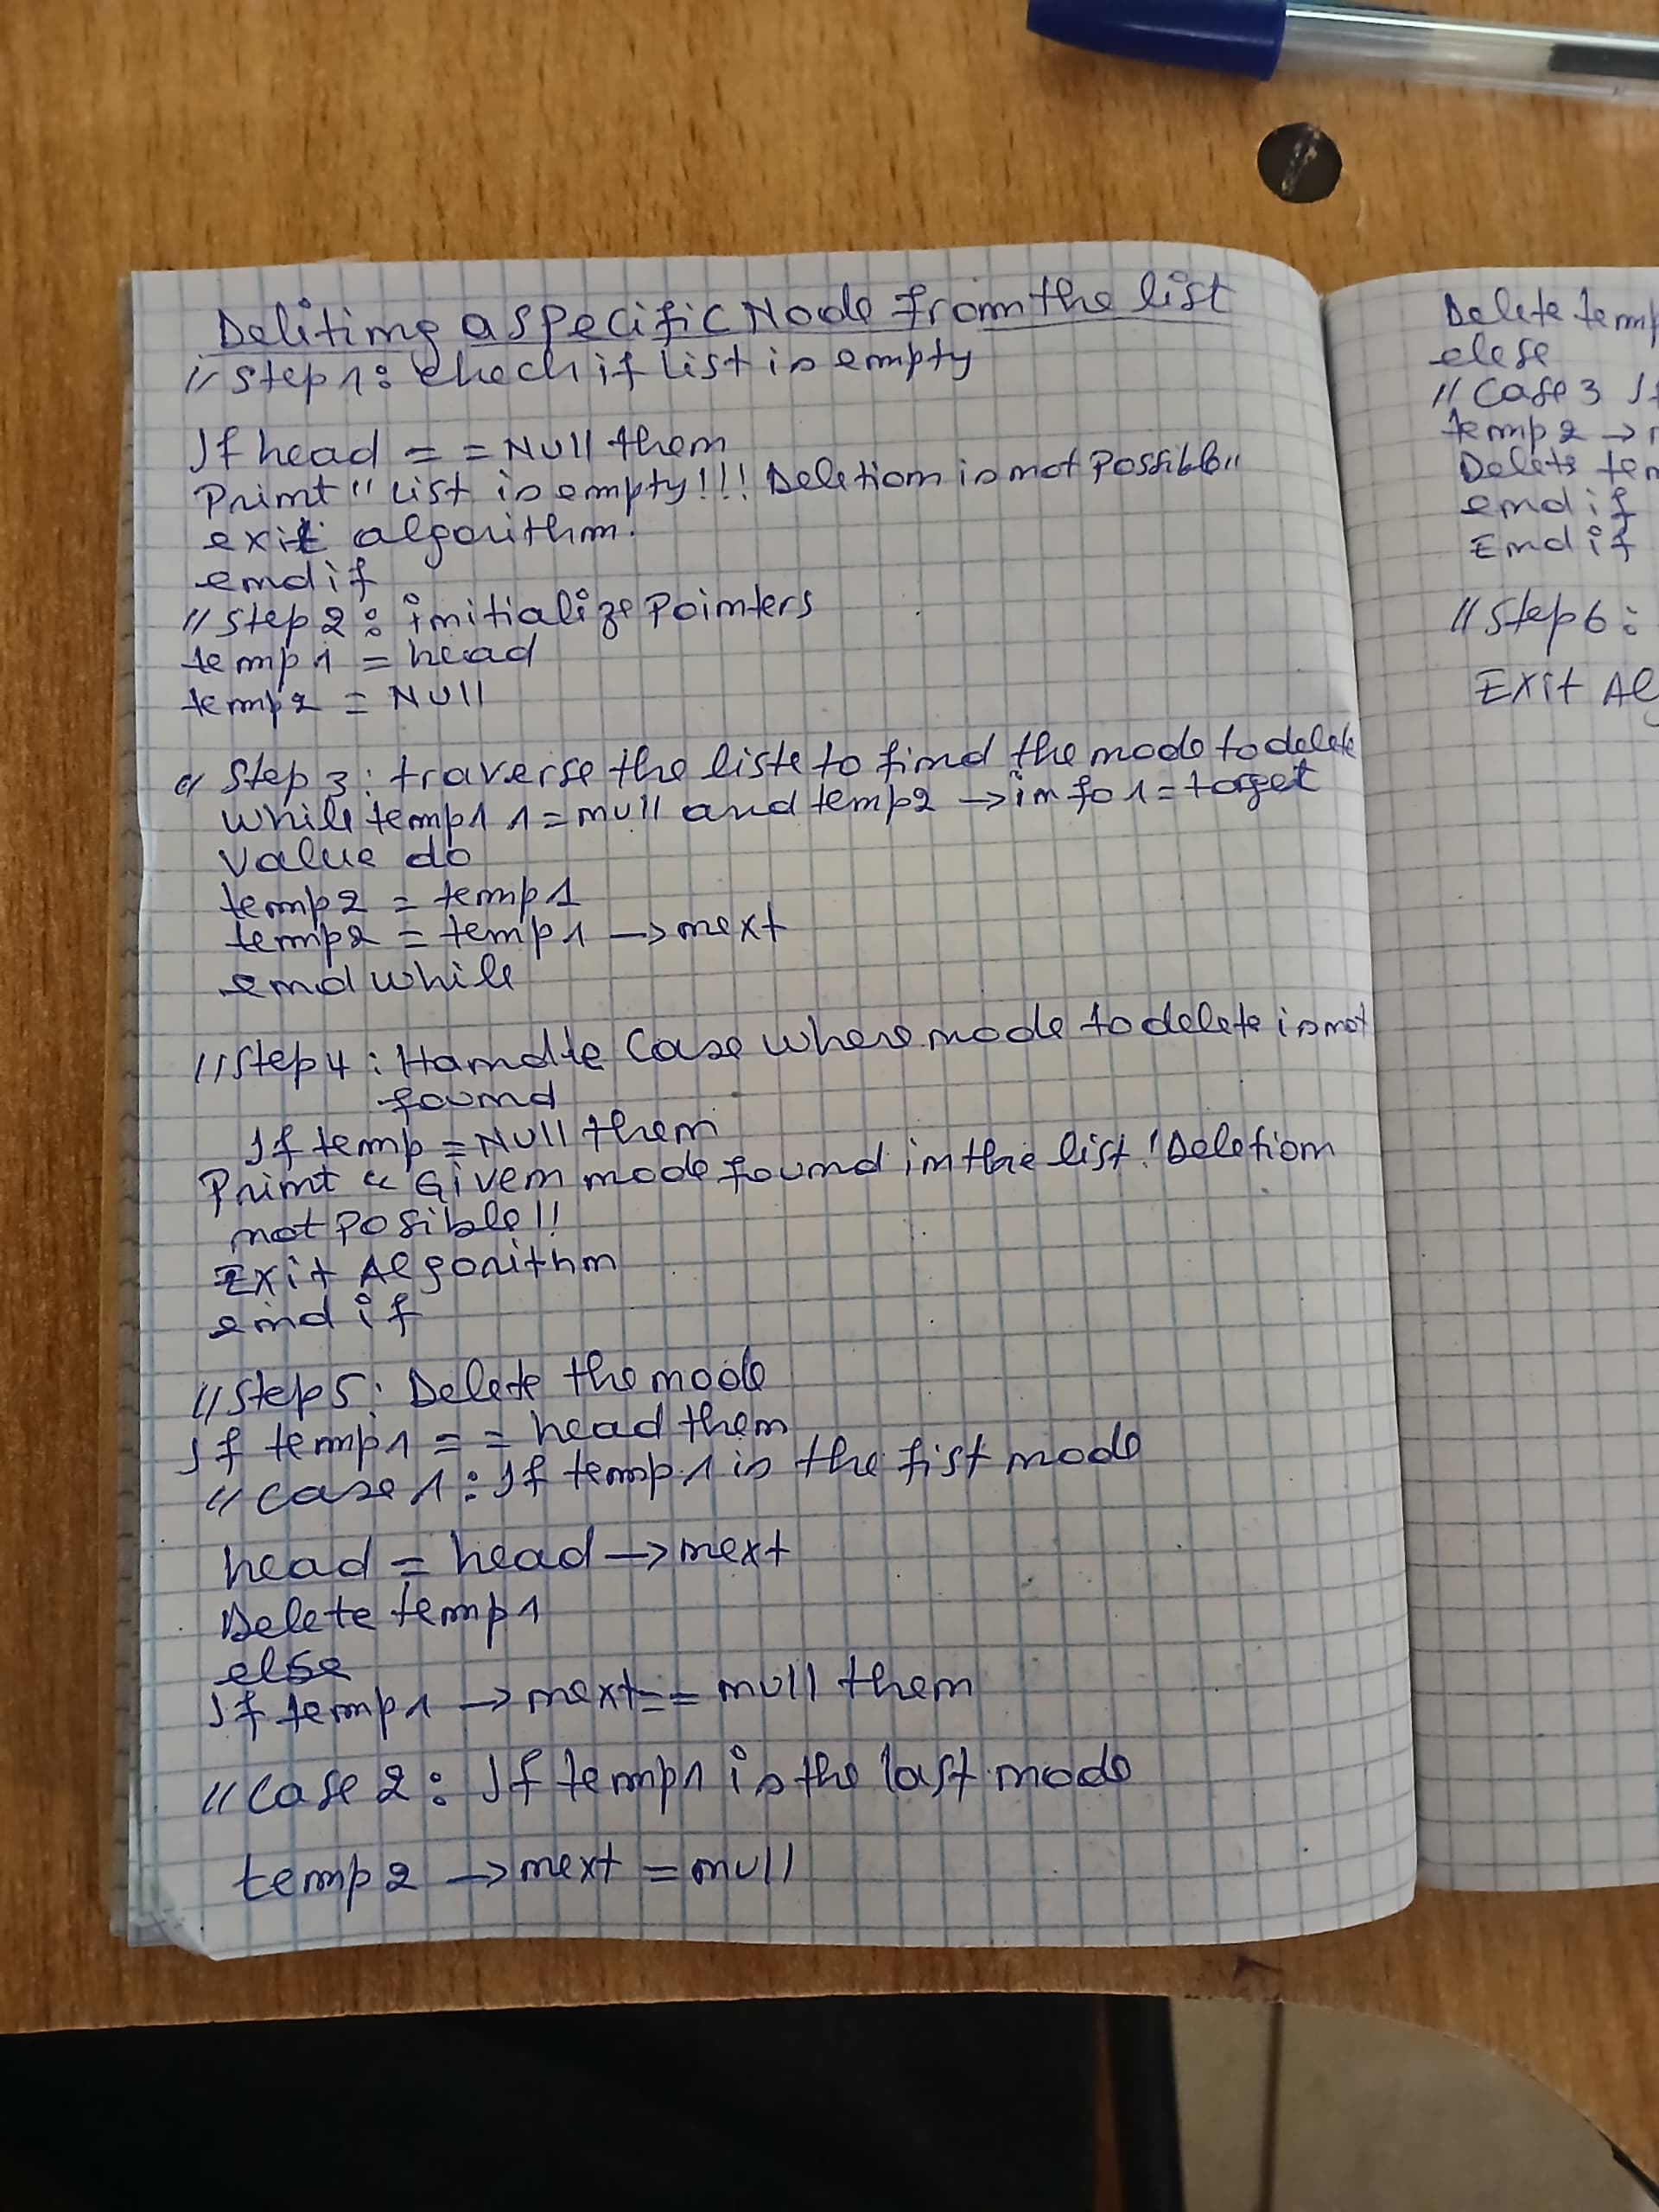 Deliting a specific Node from the list
// Step 1: check if list is empty
If head = = NUll then
Print " list is empty!!! Deletion is not Possible"
exit algorithm.
end if
// Step 2: initialize Pointers
temp1 = head
temp2 = NUll
// Step 3: traverse the liste to find the node to delete
While temp1 1= null and temp2 → info1 = target
value do
temp2 = temp1
temp2 = temp1 → next
end while
// Step 4: Handle Case where node to delete is not
found
If temp = NUll then
Print " Given node found in the list! Deletion
not posible!!
Exit Algorithm
end if
// Step 5: Delete the node
If temp1 = = head then
// case 1: If temp1 is the fist node
head = head → next
Delete temp1
else
If temp1 → next == null then
// Case 2: If temp1 is the last node
temp2 → next = null
Delete temp
elese
// Case 3 If
temp2 →
Delete
end if
End if
// Step 6:
Exit